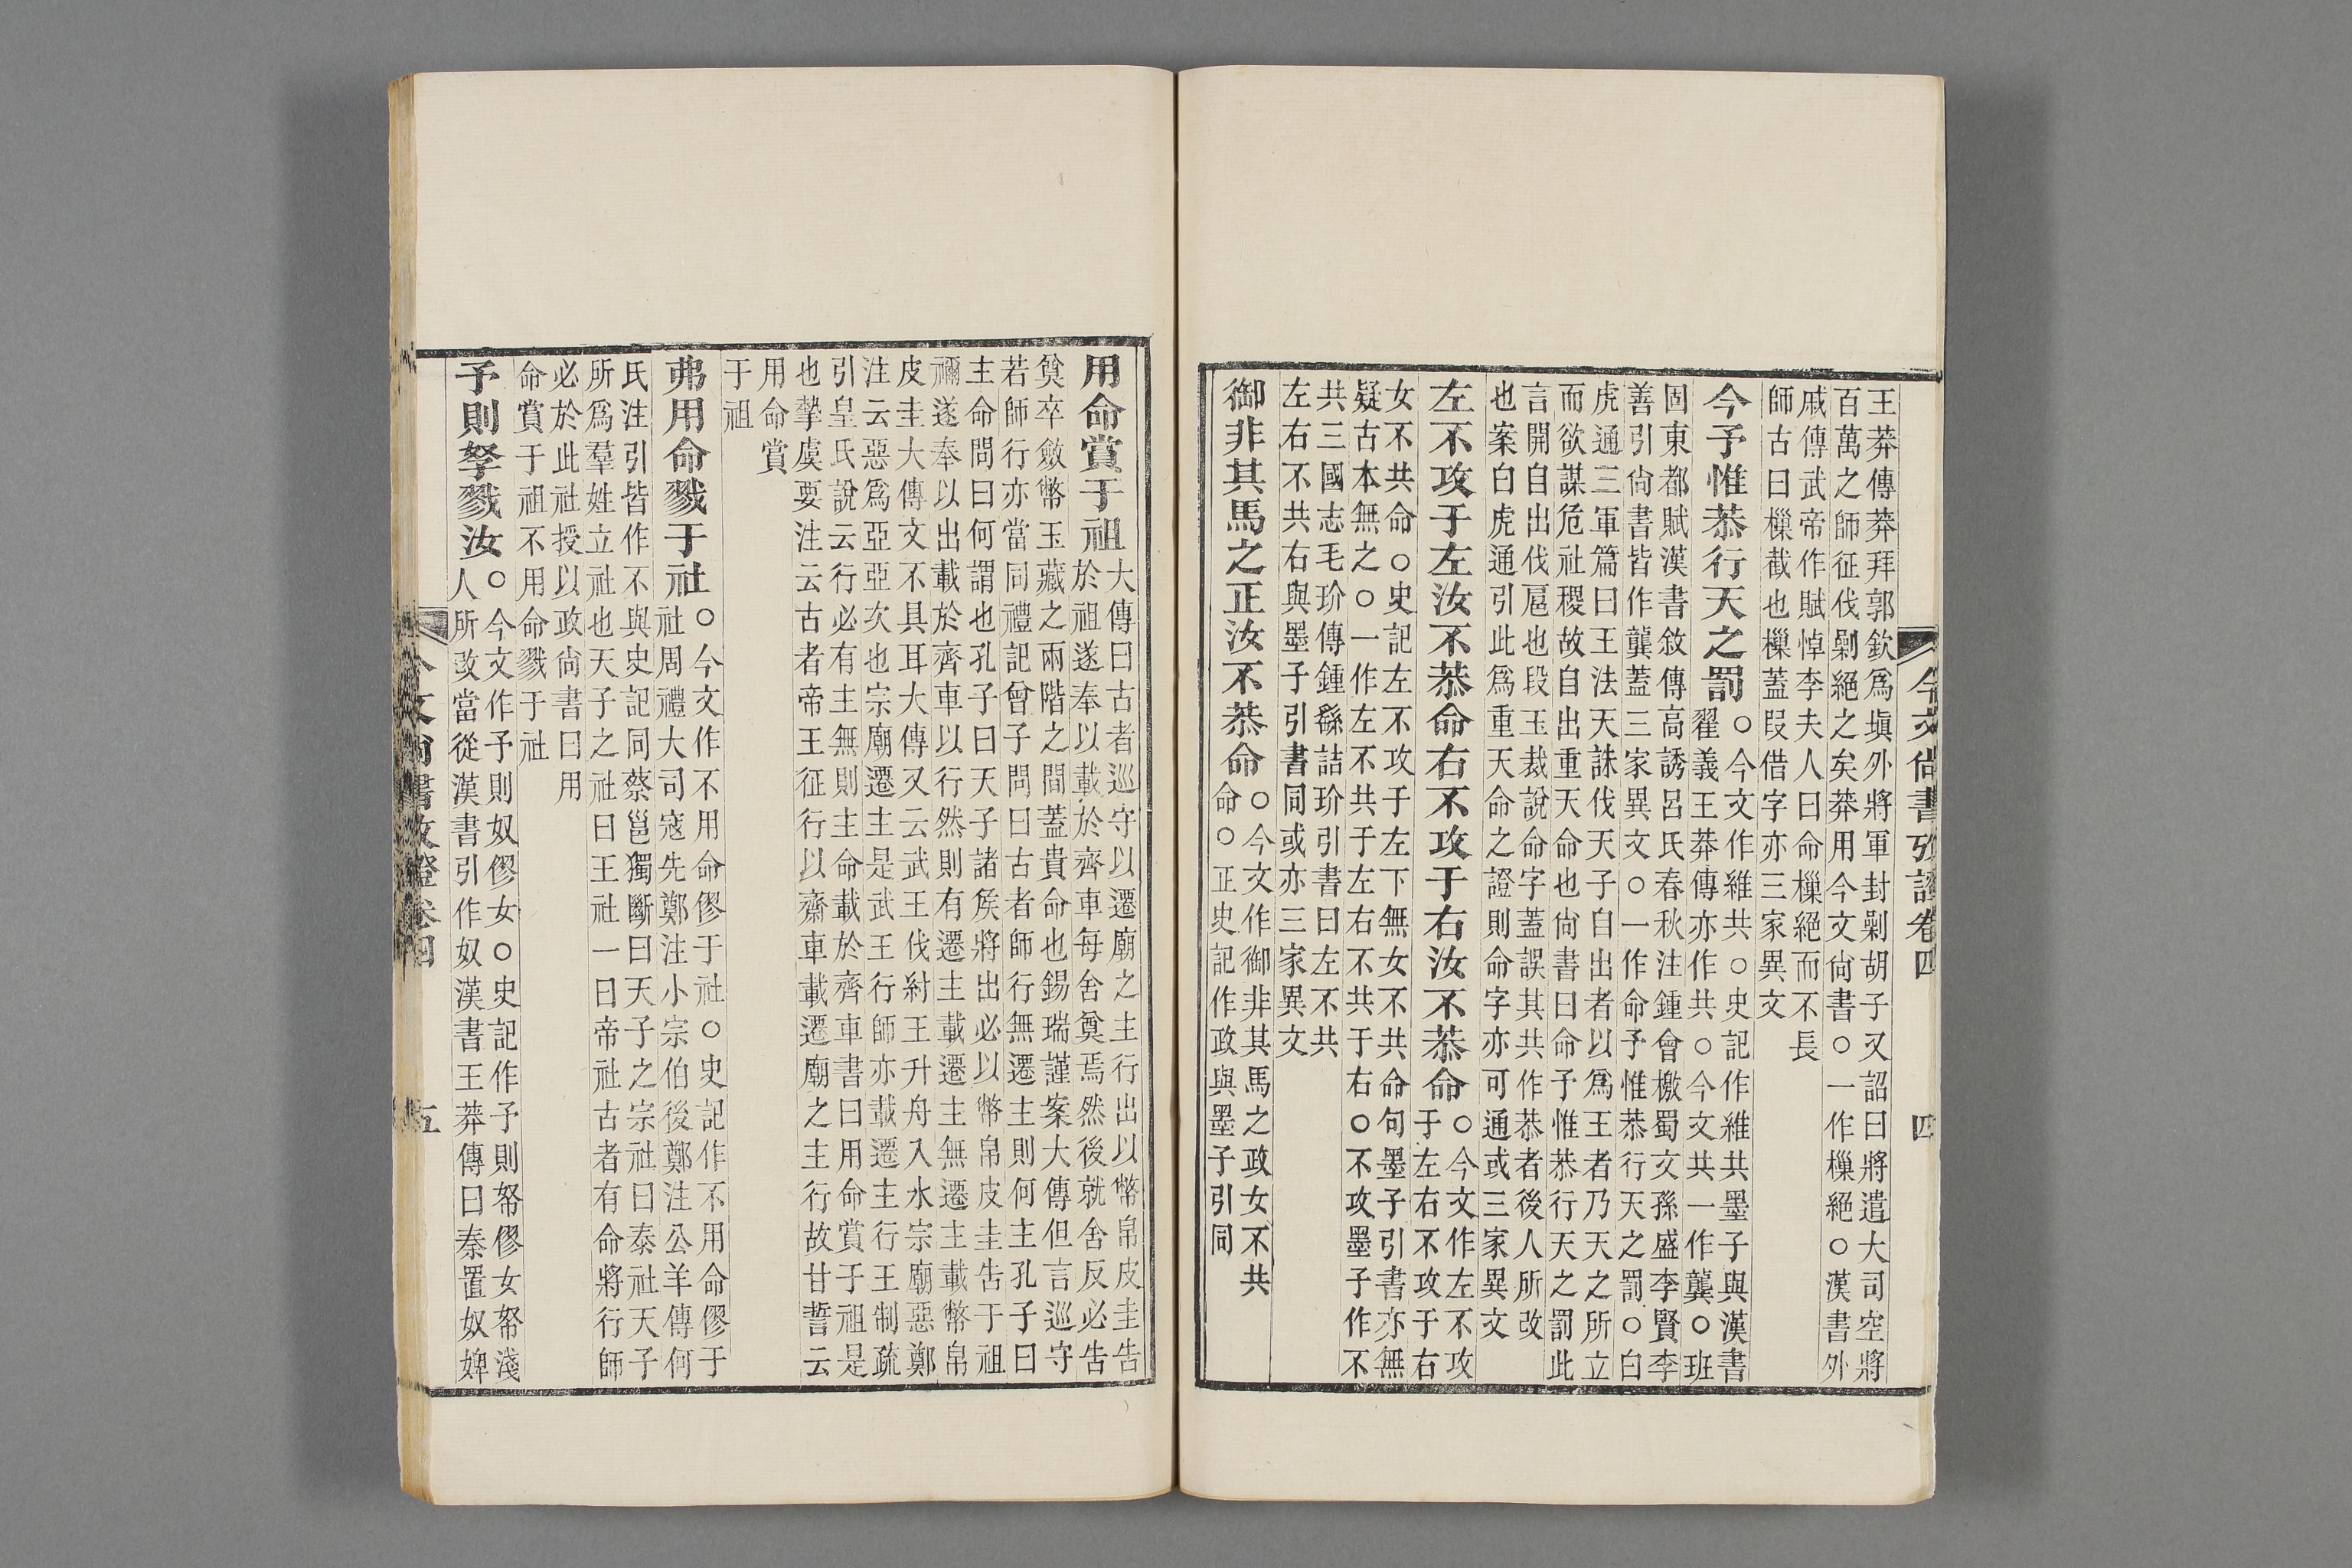 今文尚書攷證卷四
四
王莽傳莽拜郭欽爲塡外將軍封劋胡子又詔曰將遣大司空將
百萬之師征伐劋絕之矣莽用今文尙書○一作樔絕○漢書外
戚傳武帝作賦悼李夫人曰命樔絕而不長
師古曰樔截也樔蓋叚借字亦三家異文
今予惟恭行天之罰○今文作維共○史記作維共墨子與漢書
翟義王莽傳亦作共○今文共一作龔○班
固東都賦漢書敘傳高誘呂氏春秋注鍾會檄蜀文孫盛李賢李
善引尙書皆作龔蓋三家異文○一作命予惟恭行天之罰○白
虎通三軍篇曰王法天誅伐天子自出者以爲王者乃天之所立
而欲謀危社稷故自出重天命也尙書曰命予惟恭行天之罰此
言開自出伐扈也段玉裁說命字蓋誤其共作恭者後人所改
也案白虎通引此爲重天命之證則命字亦可通或三家異文
左不攻于左汝不恭命右不攻于右汝不恭命○今文作左不攻
于左右不攻于右
女不共命○史記左不攻于左下無女不共命句墨子引書亦無
疑古本無之○一作左不共于左右不共于右○不攻墨子作不
共三國志毛玠傳鍾繇詰玠引書曰左不共
左右不共右與墨子引書同或亦三家異文
御非其馬之正汝不恭命○今文作御非其馬之政女不共
命○正史記作政與墨子引同
用命賞于祖大傳曰古者巡守以遷廟之主行出以幣帛皮圭告
於祖遂奉以載於齊車每舍奠焉然後就舍反必告
奠卒斂幣玉藏之兩階之間蓋貴命也錫瑞謹案大傳但言巡守
若師行亦當同禮記曾子問曰古者師行無遷主則何主孔子曰
主命問曰何謂也孔子曰天子諸矦將出必以幣帛皮圭告于祖
禰遂奉以出載於齊車以行然則有遷主載遷主無遷主載幣帛
皮圭大傳文不具耳大傳又云武王伐紂王升舟入水宗廟惡鄭
注云惡爲亞亞次也宗廟遷主是武王行師亦載遷主行王制疏
引皇氏說云行必有主無則主命載於齊車書曰用命賞于祖是
也摯虞要注云古者帝王征行以齋車載遷廟之主行故甘誓云
用命賞
于祖
弗用命戮于社○今文作不用命僇于社○史記作不用命僇于
社周禮大司寇先鄭注小宗伯後鄭注公羊傳何
氏注引皆作不與史記同蔡邕獨斷曰天子之宗社曰泰社天子
所爲羣姓立社也天子之社曰王社一曰帝社古者有命將行師
必於此社授以政尙書曰用
命賞于祖不用命戮于社
予則孥戮汝○今文作予則奴僇女○史記作予則帑僇女帑淺
人所改當從漢書引作奴漢書王莽傳曰秦置奴婢
今文尚書攷證卷四
五